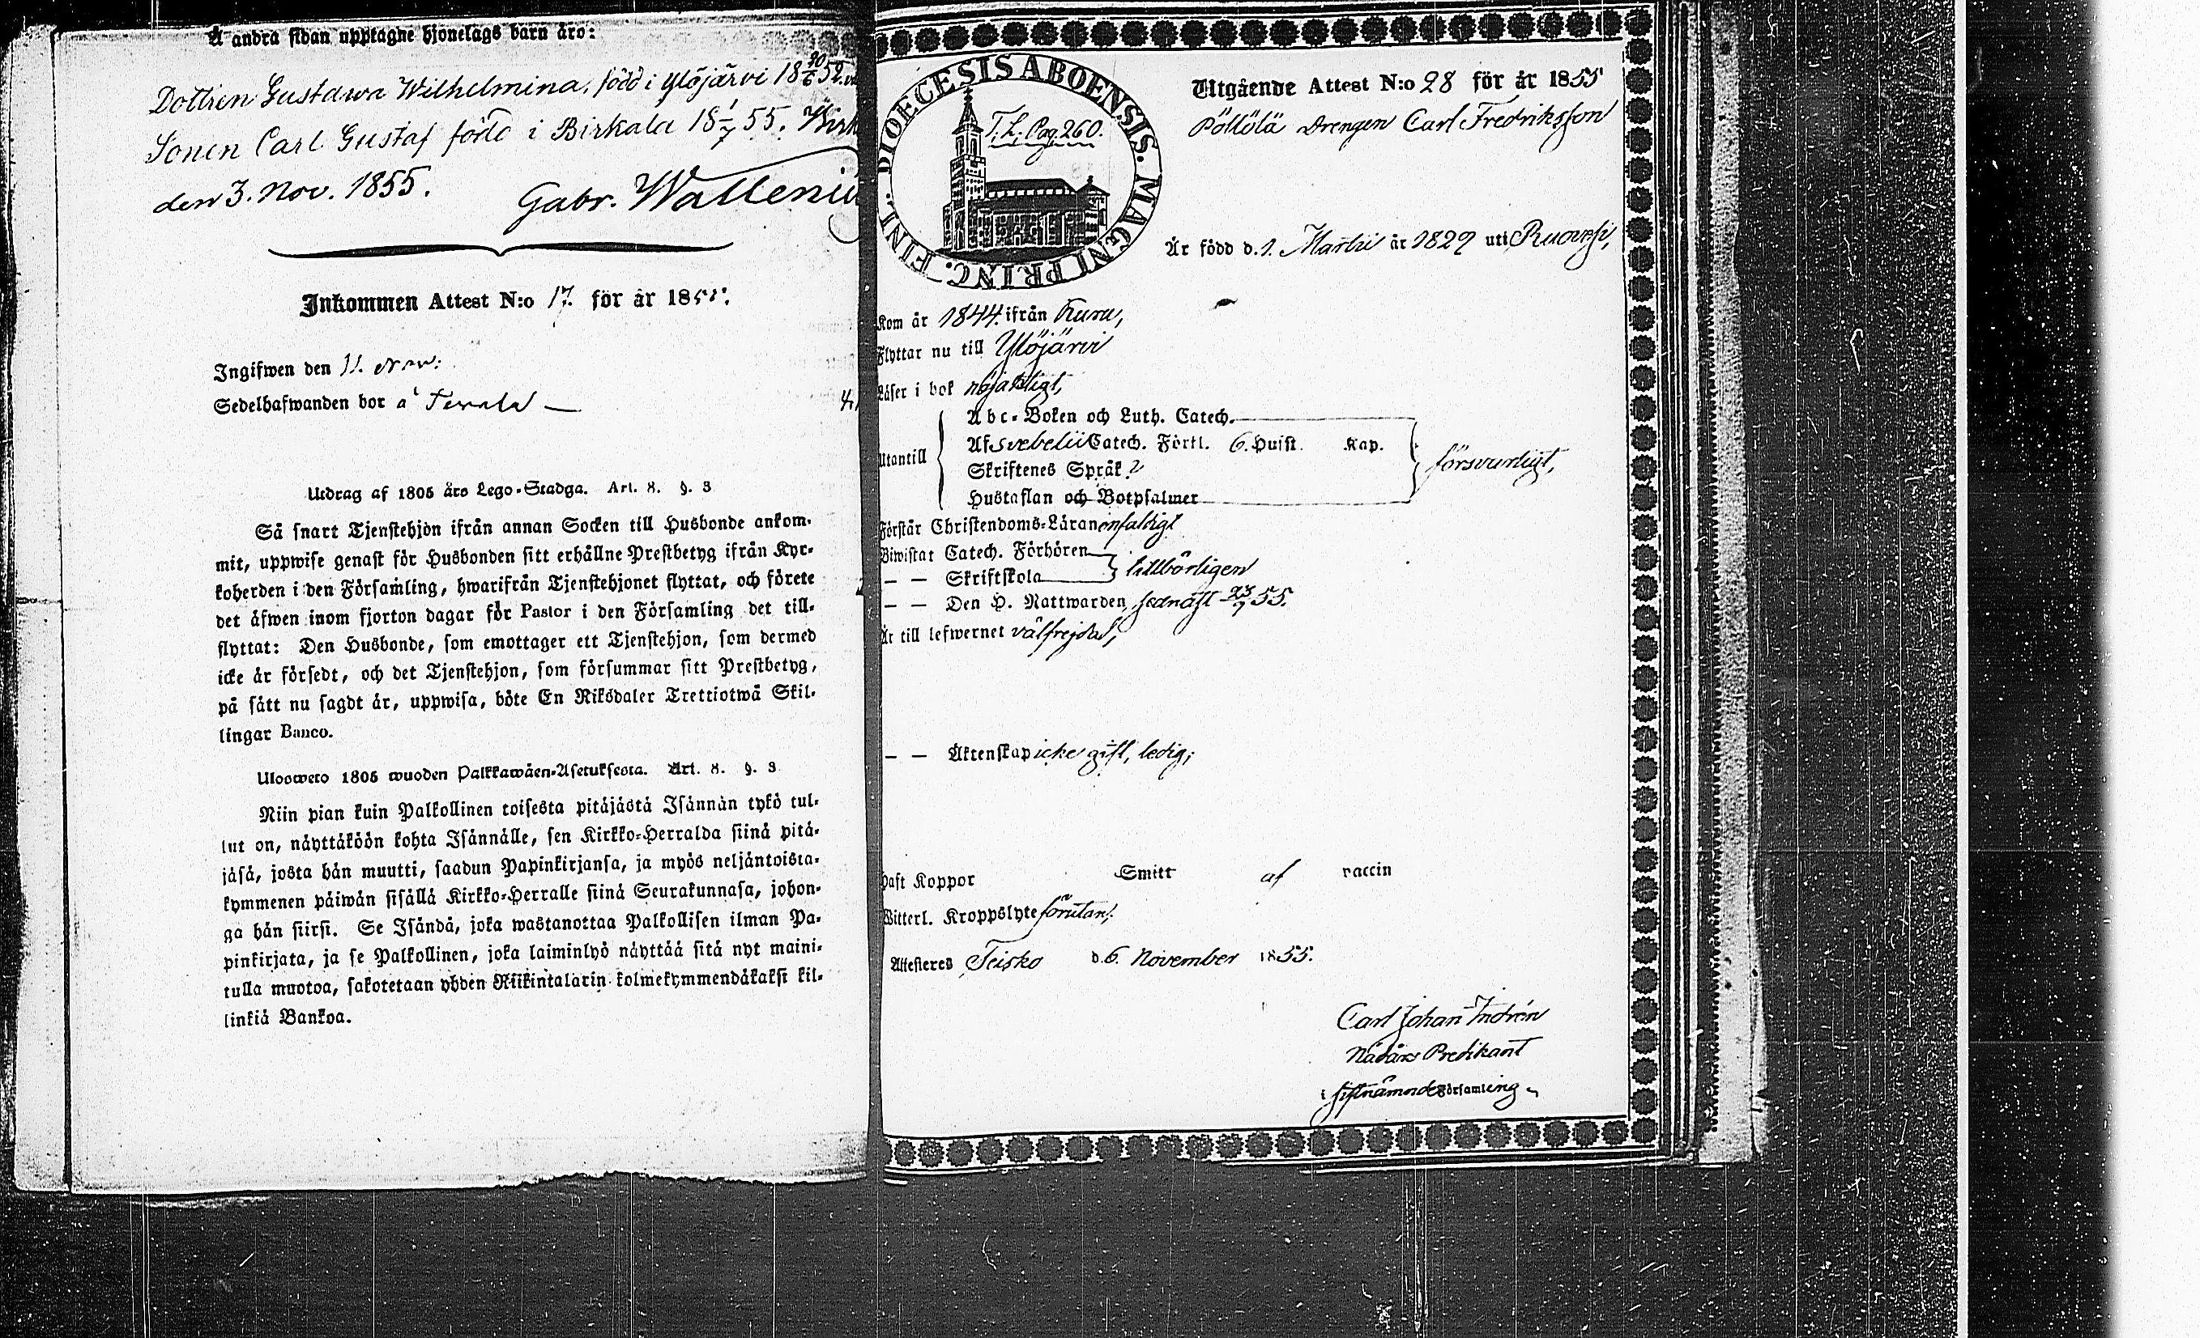 Å andra sidan upptagne hjonelags barn äro:
Dottren Gustawa Wilhelmina, född i Ylöjärvi 18 10/6 52.
Sonen Carl Gustaf född i Birkala 18 1/7 55.
den 3. Nov. 1855.
Gabr. Walleniu
Inkommen Attest N:o 17. för år 1855.
Ingifwen den 11. Nov:
Sedelhafwanden bor å
Utdrag af 1805 års Lego-Stadga. Art. 8. §. 3
Så snart Tjenstehjon ifrån annan Socken till Husbonde ankom-
mit, uppwise genast för Husbonden sitt erhållne Prestbetyg ifrån Kyr-
koherden i den Församling, hwarifrån Tjenstehjonet flyttat, och förete
det äfwen inom fjorton dagar för Pastor i den Församling det till-
flyttat: Den Husbonde, som emottager ett Tjenstehjon, som dermed
icke är försedt, och det Tjenstehjon, som försummar sitt Prestbetyg,
på sätt nu sagdt är, uppwisa, böte En Riksdaler Trettiotwå Skil-
lingar Banco.
Uloswweto 1805 wuoden Palkkawäen-Asetuksesta. Art. 8. §. 3
Niin pian kuin Palkollinen toisesta pitäjästä Isännän tykö tul-
lut on, näyttäköön kohta Isännälle, sen Kirkko-Herralda siinä pitä-
jäsä, josta hän muutti, saadun Papinkirjansa, ja myös neljäntoista-
kymmenen päiwän sisällä Kirkko-Herralle siinä Seurakunnasa, johon-
ga hän siirsi. Se Isändä, joka wastanottaa Palkollisen ilman Pa-
pinkirjata, ja se Palkollinen, joka laiminlyö näyttää sitä nyt maini-
tulla muotoa, sakotetaan yhden Riikintalarin kolmekymmendäkaksi kil-
linkiä Bankoa.
DIOECESIS ABOENSIS. MAGNI PRINC. FINL.
T. L. Pag. 260.
Utgående Attest N:o 28 för år 1855
Pöllölä Drengen Carl Fredriksson
Är född d. 1. Martii år 1829 uti Ruovesi,
Kom år 1844. ifrån Kuru,
Flyttar nu till Ylöjärvi
Läser i bok nöjaktligt,
Utantill
Abc-Boken och Luth. Catech.
Af Svebelii Catech. Förkl. 6. Hufst. Kap.
Skriftenes Språk 2
Hustaflan och Botpsalmer
försvarligt,
Förstår Christendoms-Läran enfaldigt
Biwistat Catech. Förhören
— — Skriftskola
tillbörligen
— — Den H. Nattwarden sednast 23/9 55.
Är till lefwernet välfrejdad,
— — Äktenskap icke gift, ledig;
Haft Koppor Smitt af vaccin
Witterl. Kroppslyte förutan.
Attesteres Teisko d. 6. November 1855.
Carl Johan Indrén
Nådårs Predikant
i sistnämnde Församling